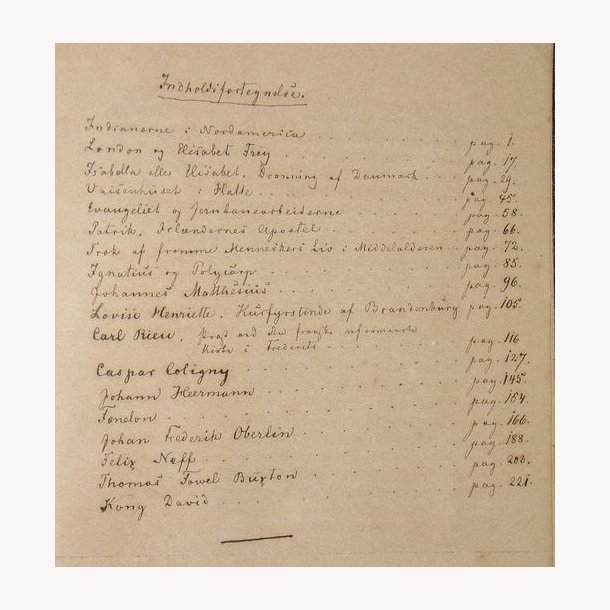 Indholdsfortegnelse.
Indianerne i Nordamerica . . . . . . . pag. 1.
London og Elisabet Frey . . . . . . . pag. 17.
Isabella eller Elisabet, Dronning af Danmark . . . pag. 29.
Vaisenhuset i Halle . . . . . . . pag. 45.
Evangeliet og Jernbanearbeiderne . . . . . pag. 58.
Patrik, Irlændernes Apostel . . . . . . pag. 66.
Træk af fromme Menneskers Liv i Middelalderen . . pag. 72.
Ignatius og Polycarp . . . . . . . pag. 85.
Johannes Matthesius . . . . . . . pag. 96.
Lovise Henriette, Kurfyrstinde af Brandenburg pag. 105.
Carl Rieu, Præst ved den fransk reformerte
Kirke i Fredericia . . . . . . . pag. 116
Caspar Coligny . . . . . . . pag. 127.
Johann Heermann . . . . . . . pag. 145
Fenelon . . . . . . . pag. 154
Johan Frederik Oberlin . . . . . . . pag. 166.
Felix Neff . . . . . . . pag. 188.
Thomas Fowel Buxton . . . . . . . pag. 203.
Kong David . . . . . . . pag. 221.